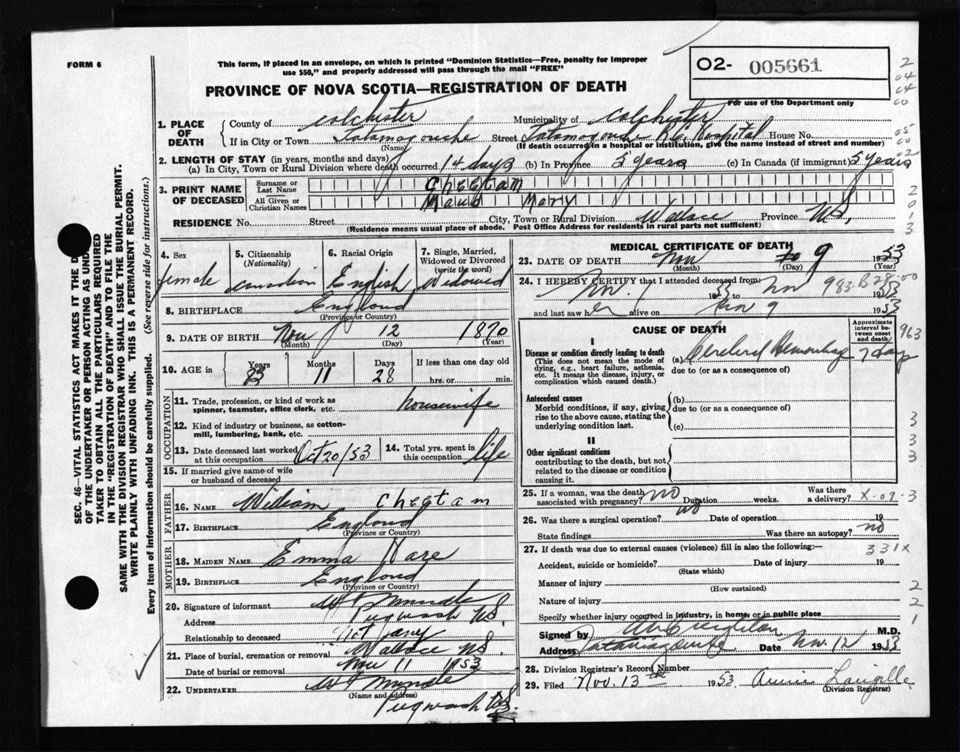 FORM 6
This form, if placed in an envelope, on which is printed "Dominion Statistics—Free, penalty for improper
use $50," and properly addressed will pass through the mail "FREE"
O2- 005661
PROVINCE OF NOVA SCOTIA—REGISTRATION OF DEATH
For use of the Department only
1. PLACE OF DEATH
County of Colchester Municipality of Colchester
If in City or Town Tatamagouche Street Tatamagouche R.C. Hospital House No.
(Name) (If death occurred in a hospital or institution, give the name instead of street and number)
2. LENGTH OF STAY (in years, months and days)
(a) In City, Town or Rural Division where death occurred 14 days (b) In Province 5 years (c) In Canada (if immigrant) 5 years
3. PRINT NAME OF DECEASED
Surname or Last Name Cheetam
All Given or Christian Names Maud Mary
RESIDENCE No. Street City, Town or Rural Division Wallace Province NS.
(Residence means usual place of abode. Post Office Address for residents in rural parts not sufficient)
4. Sex female
5. Citizenship (Nationality) Canadian
6. Racial Origin English
7. Single, Married, Widowed or Divorced (write the word) Widowed
8. BIRTHPLACE England
(Province or Country)
9. DATE OF BIRTH Nov 12 1870
(Month) (Day) (Year)
10. AGE in Years Months 11 Days 28 If less than one day old hrs. or min.
OCCUPATION
11. Trade, profession, or kind of work as spinner, teamster, office clerk, etc. housewife
12. Kind of industry or business, as cotton-mill, lumbering, bank, etc.
13. Date deceased last worked at this occupation Oct 20/53
14. Total yrs. spent in this occupation life
15. If married give name of wife or husband of deceased
FATHER
16. NAME William Cheetam
17. BIRTHPLACE England
(Province or Country)
MOTHER
18. MAIDEN NAME Emma Hare
19. BIRTHPLACE England
(Province or Country)
20. Signature of informant
Address Pugwash NS
Relationship to deceased
21. Place of burial, cremation or removal Wallace NS.
Date of burial or removal Nov 11 1953
22. UNDERTAKER
(Name and address)
Pugwash NS.
MEDICAL CERTIFICATE OF DEATH
23. DATE OF DEATH Nov 9 1953
(Month) (Day) (Year)
24. I HEREBY CERTIFY that I attended deceased from Nov. 1 1953 to Nov 9 1953
and last saw her alive on Nov 9 1953
CAUSE OF DEATH
Approximate interval between onset and death
I
Disease or condition directly leading to death (a) Cerebral Hemorrhage 7 days
(This does not mean the mode of dying, e.g., heart failure, asthenia, etc. It means the disease, injury, or complication which caused death.)
due to (or as a consequence of)
Antecedent causes
Morbid conditions, if any, giving rise to the above cause, stating the underlying condition last.
(b)
due to (or as a consequence of)
(c)
II
Other significant conditions
contributing to the death, but not related to the disease or condition causing it.
25. If a woman, was the death associated with pregnancy? no Duration weeks. Was there a delivery? X-09-3
26. Was there a surgical operation? no Date of operation 19
State findings Was there an autopsy? no
27. If death was due to external causes (violence) fill in also the following:— 331X
Accident, suicide or homicide? Date of injury 19
(State which)
Manner of injury
(How sustained)
Nature of injury
Specify whether injury occurred in industry, in home, or in public place
Signed by M.D.
Address Tatamagouche Date Nov. 12 1953
28. Division Registrar's Record Number
29. Filed Nov. 13th 1953 Langille
(Division Registrar)
SEC. 46—VITAL STATISTICS ACT MAKES IT THE D
OF THE UNDERTAKER OR PERSON ACTING AS UND
TAKER TO OBTAIN ALL THE PARTICULARS REQUIRED
IN THE "REGISTRATION OF DEATH" AND TO FILE THE
SAME WITH THE DIVISION REGISTRAR WHO SHALL ISSUE THE BURIAL PERMIT.
WRITE PLAINLY WITH UNFADING INK. THIS IS A PERMANENT RECORD.
Every item of Information should be carefully supplied. (See reverse side for instructions.)